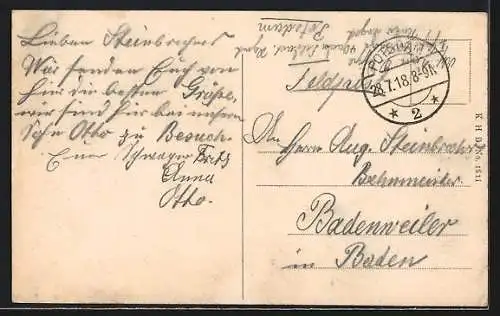 Lieben Steinbrechers
Wir senden Euch von
hier die besten Grüße,
wir sind hier bei unsern
Sohn Otto zu Besuch
Euer Schwager Fritz
Anna
Otto.
Potsdam
Feldpost
POTSDAM
28.7.18.8-9N
* 2 *
An Herrn Aug. Steinbrecher
Bahnmeister
Badenweiler
in Baden
K H D No. 1811